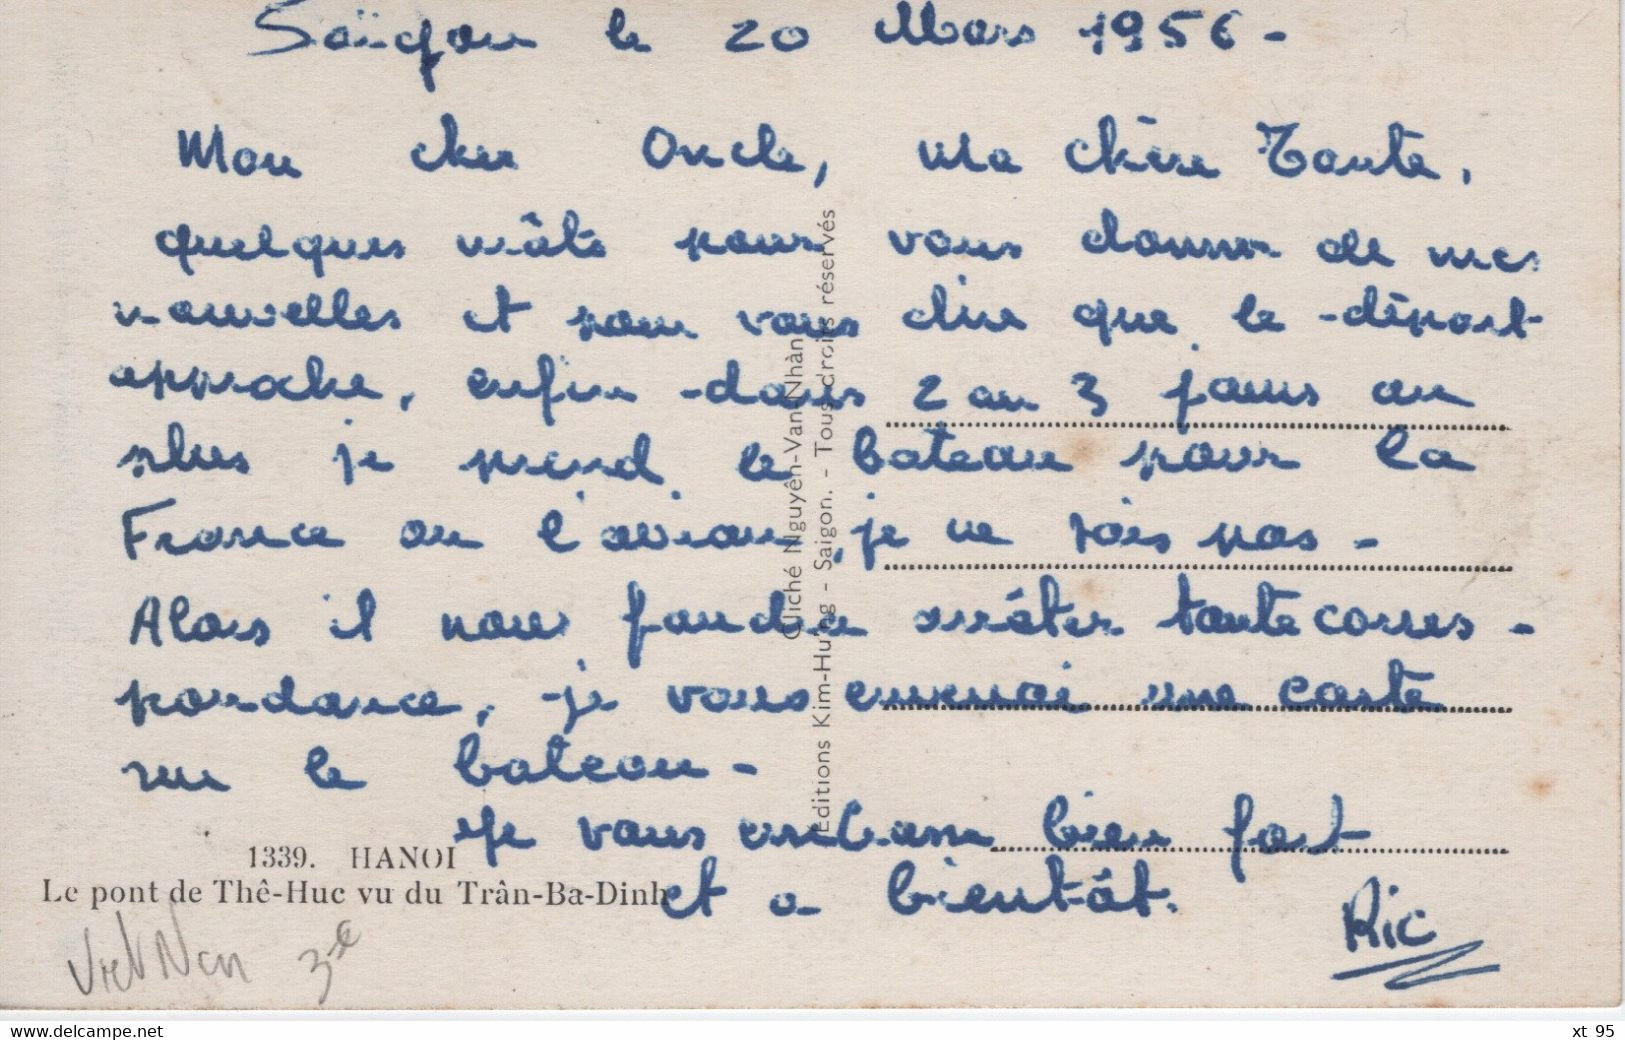 Saïgon le 20 Mars 1956 -
Mon cher Oncle, Ma chère Tante,
quelques mots pour vous donner de mes
nouvelles et pour vous dire que le départ
approche, enfin dans 2 ou 3 jours au
plus je prend le bateau pour la
France ou l'avion, je ne sais pas -
Alors il nous faudra arrêter toute corres -
pondance, je vous enverrai une carte
sur le bateau -
Je vous embrasse bien fort
et a bientôt.
Ric
Cliché Nguyên-Van-Nhàn
Editions Kim-Hung - Saigon. - Tous droits réservés
1339. HANOI
Le pont de Thê-Huc vu du Trân-Ba-Dinh
Viet Nam 3€
www.delcampe.net
xt 95